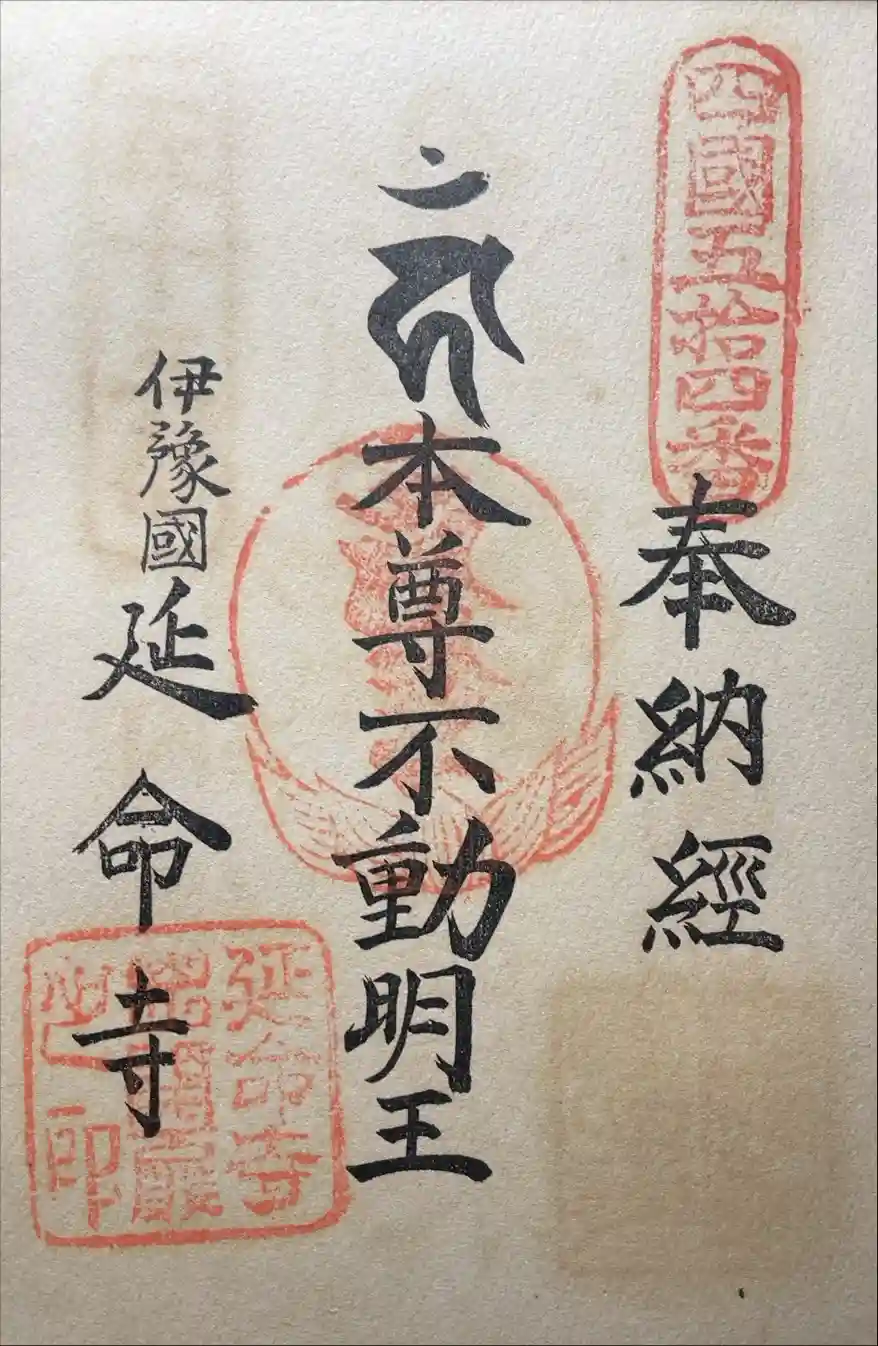 四國五拾四番
奉納經
本尊不動明王
伊豫國延命寺
延命寺
印